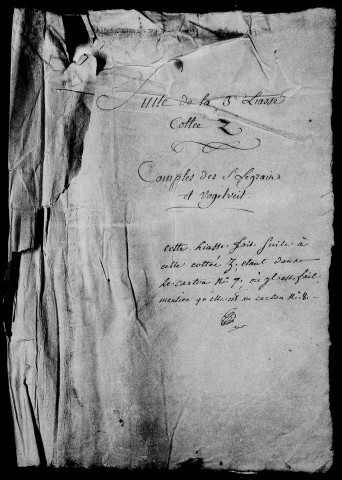 Suite de la 3e Liasse
Cottée Z
Comptes des Srs Legrain
et Vogelveit
Cette Liasse fait suite à
celle cottée Z, étant dans
le carton No 7, où il est fait
mention qu'elle est au carton No 8.